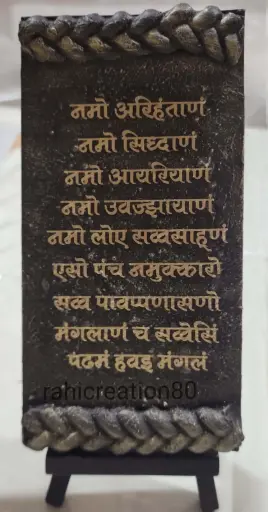 नमो अरिहंताणं
नमो सिध्दाणं
नमो आयरियाणं
नमो उवज्झायाणं
नमो लोए सव्वसाहूणं
एसो पंच नमुक्कारो
सव्व पावप्पणासणो
मंगलाणं च सव्वेसिं
पढमं हवइ मंगलं
rahicreation80